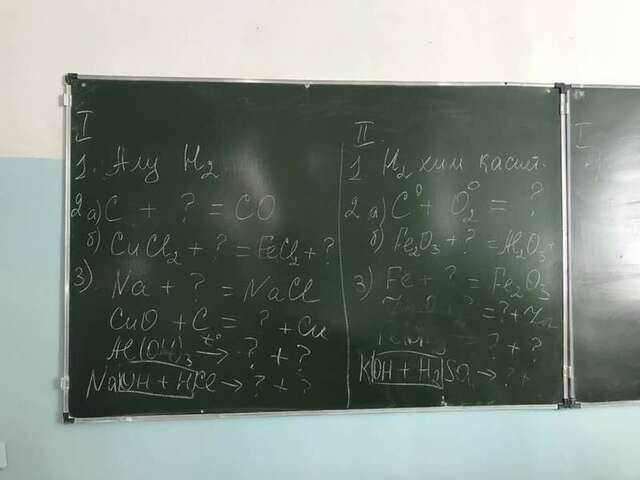 I
1. Алу H₂
2 а) C + ? = CO
б) CuCl₂ + ? = FeCl₂ + ?
3) Na + ? = NaCl
CuO + C = ? + Cu
Al(OH)₃ t°→ ? + ?
NaOH + HCl → ? + ?
II
1. H₂ хим қасиет.
2 а) C⁰ + O₂⁰ = ?
б) Fe₂O₃ + ? = Al₂O₃ +
3) Fe + ? = Fe₂O₃
? = ? + Zn
→ ? + ?
KOH + H₂SO₄ → ? +
I